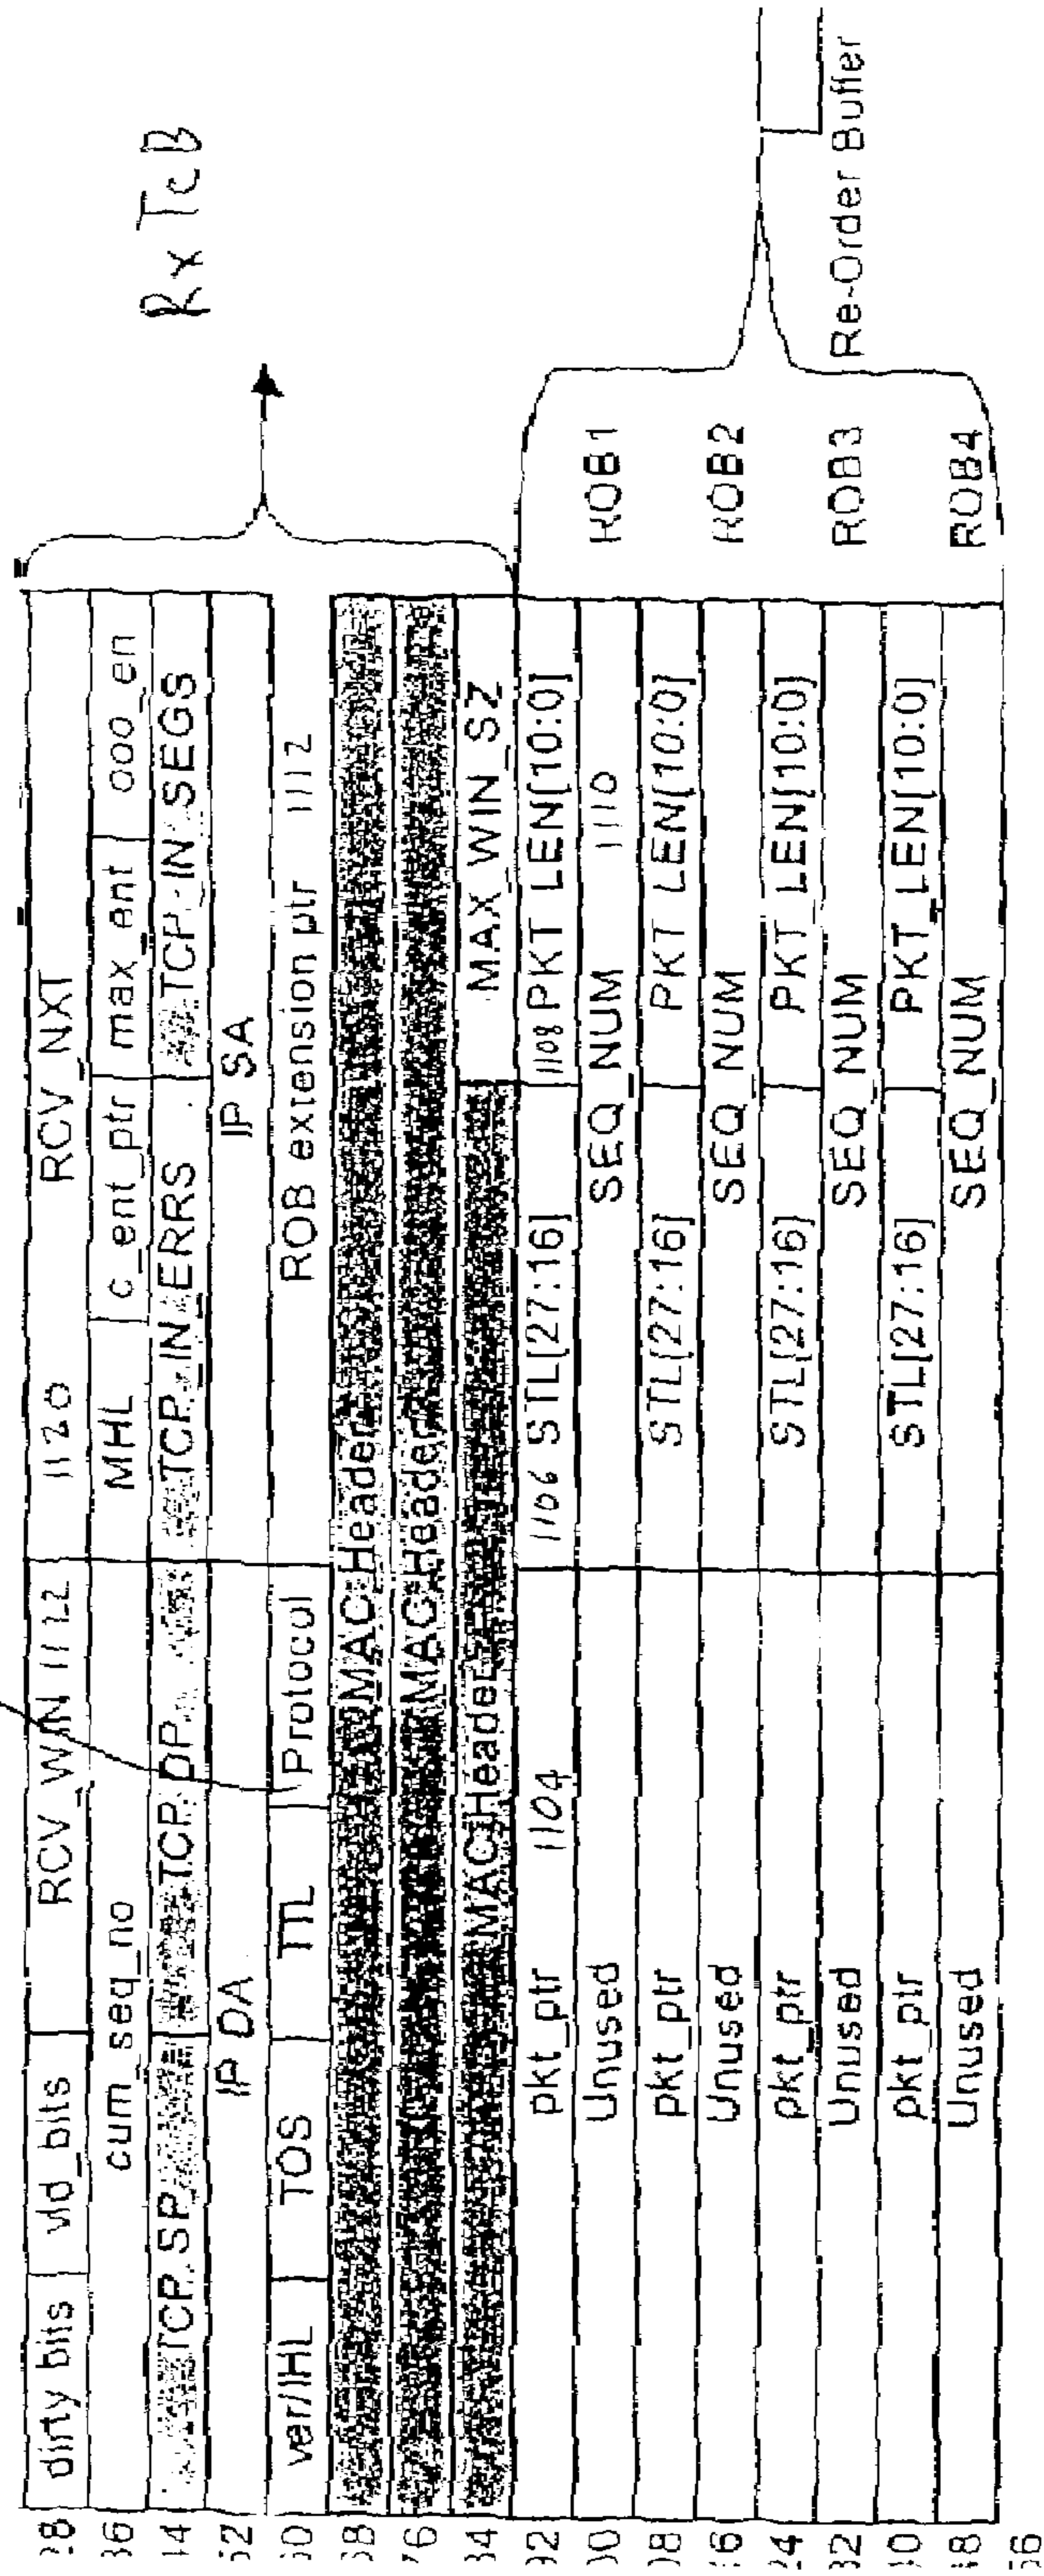 dirty bits vld_bits RCV_WIN 1122 1120 RCV_NXT
cum_seq_no MHL c_ent_ptr max_ent ooo_en
TCP SP TCP DP TCP_IN_ERRS TCP-IN SEGS
IP DA IP SA
ver/IHL TOS TTL Protocol ROB extension ptr 1112
MAC Header
MAC Header
MAC Header MAX_WIN_SZ
pkt_ptr 1104 1106 STL[27:16] 1108 PKT LEN[10:0]
Unused SEQ_NUM 1110
pkt_ptr STL[27:16] PKT LEN[10:0]
Unused SEQ_NUM
pkt_ptr STL[27:16] PKT LEN[10:0]
Unused SEQ_NUM
pkt_ptr STL[27:16] PKT_LEN[10:0]
Unused SEQ_NUM
RxTcB
ROB1
ROB2
ROB3
ROB4
Re-Order Buffer